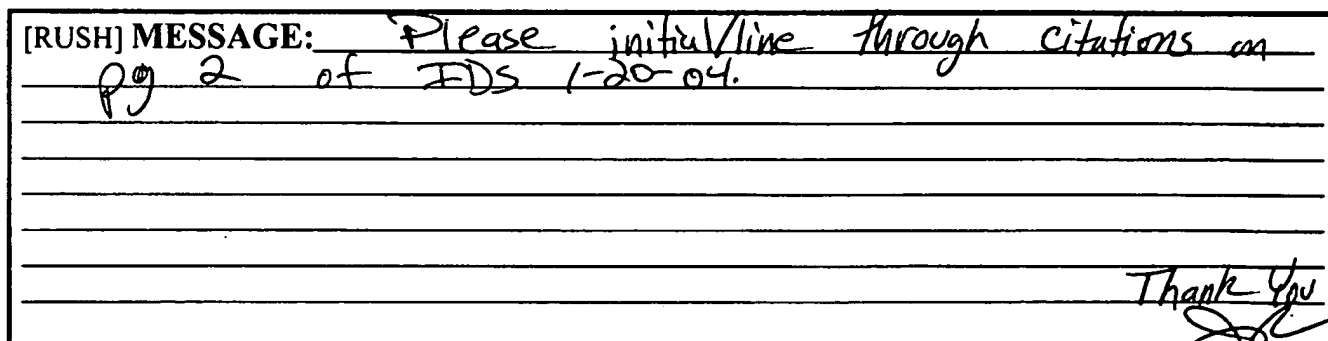 [RUSH] MESSAGE: Please initial/line through citations on
pg 2 of IDS 1-20-04.
Thank You